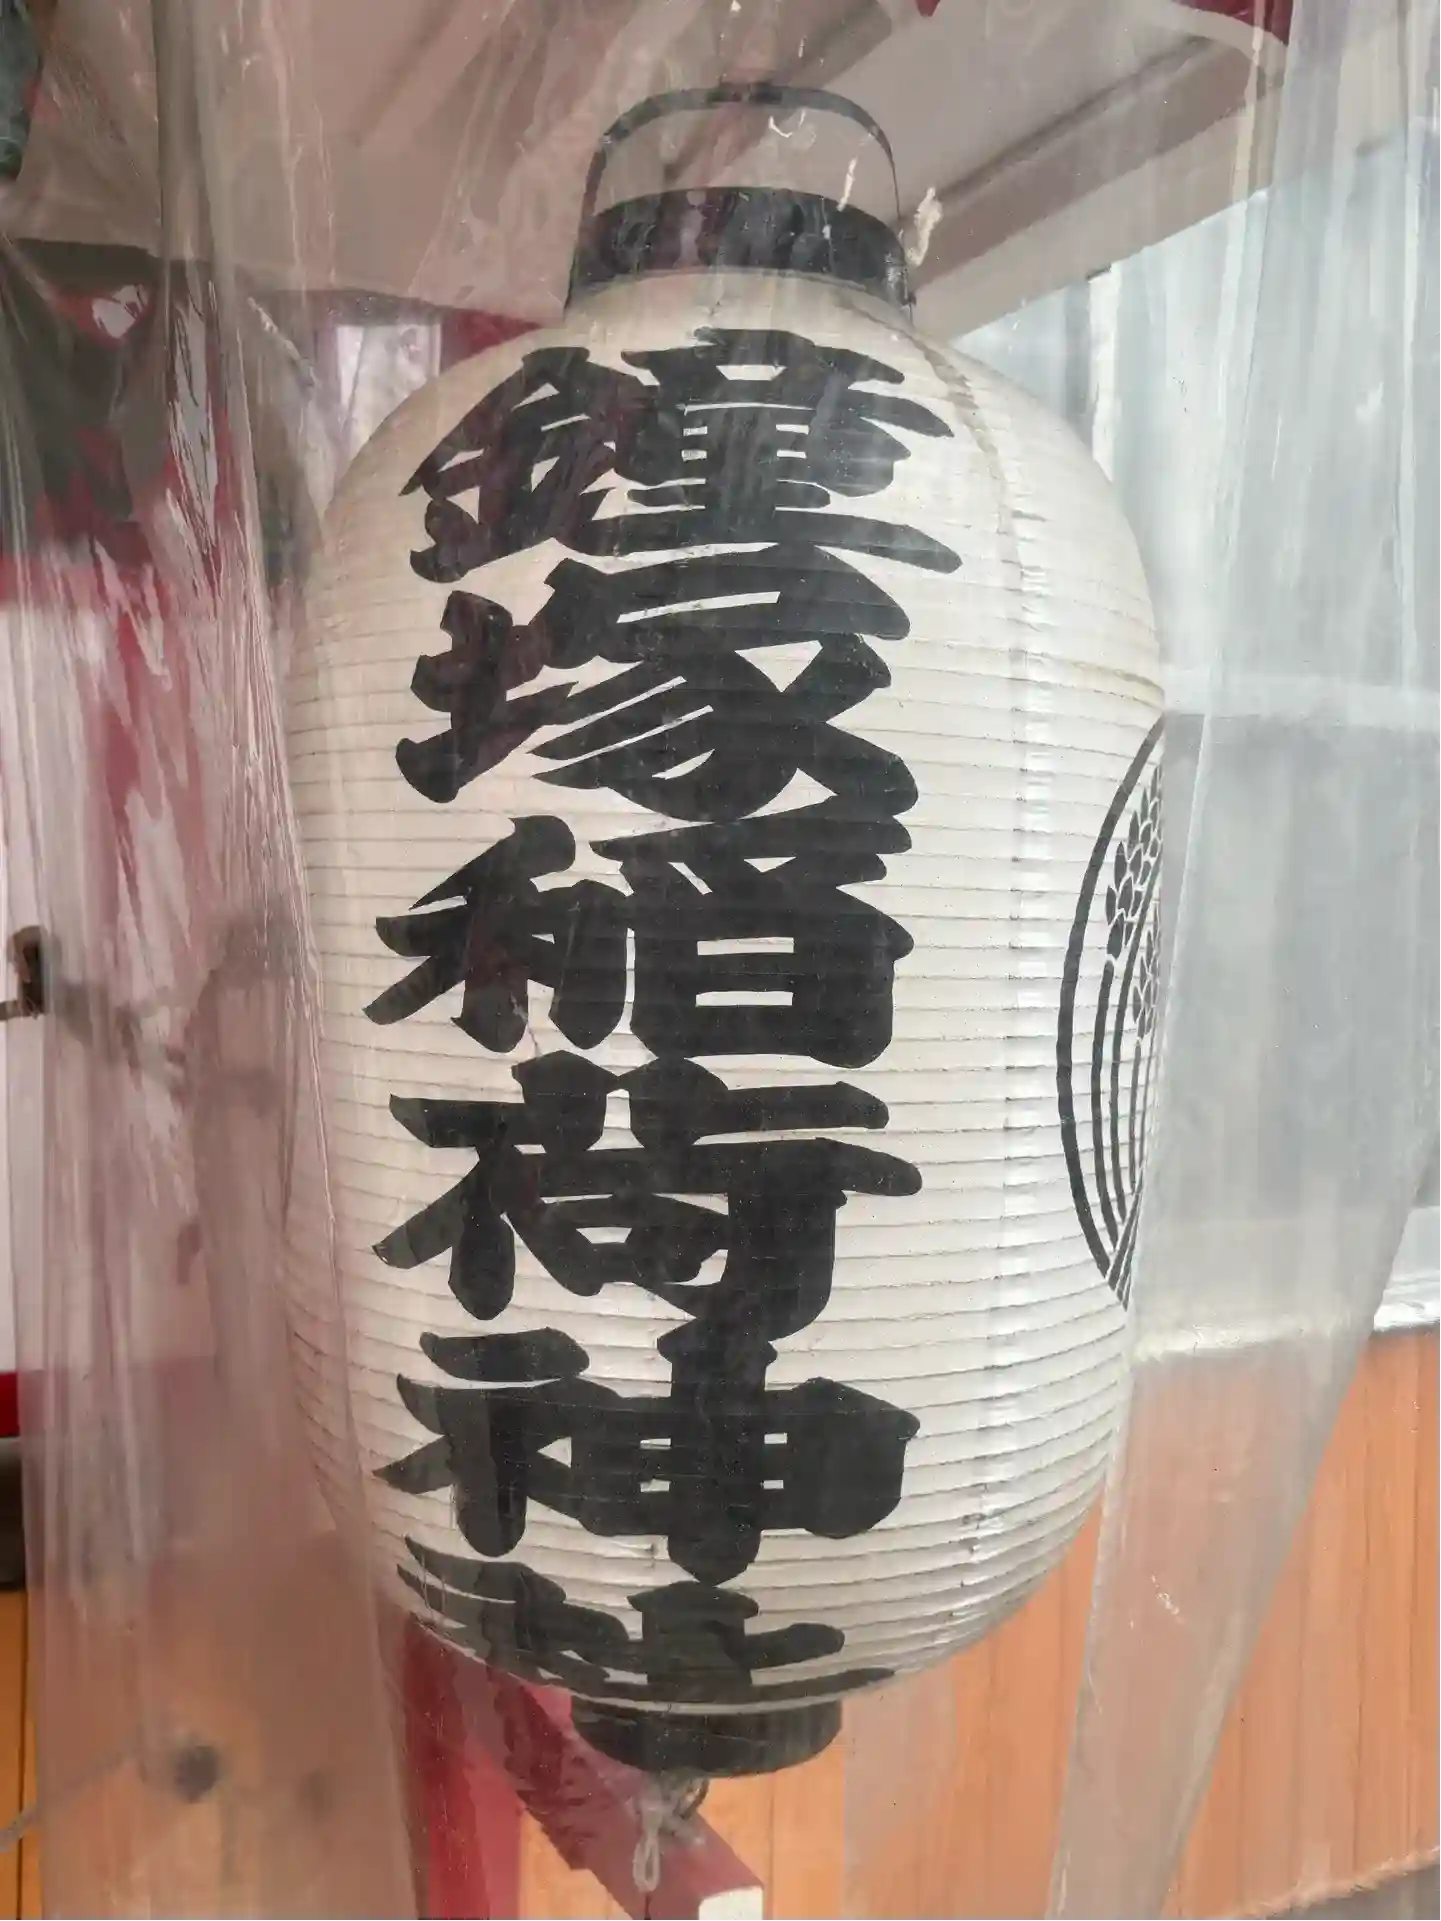 鐘塚稲荷神社